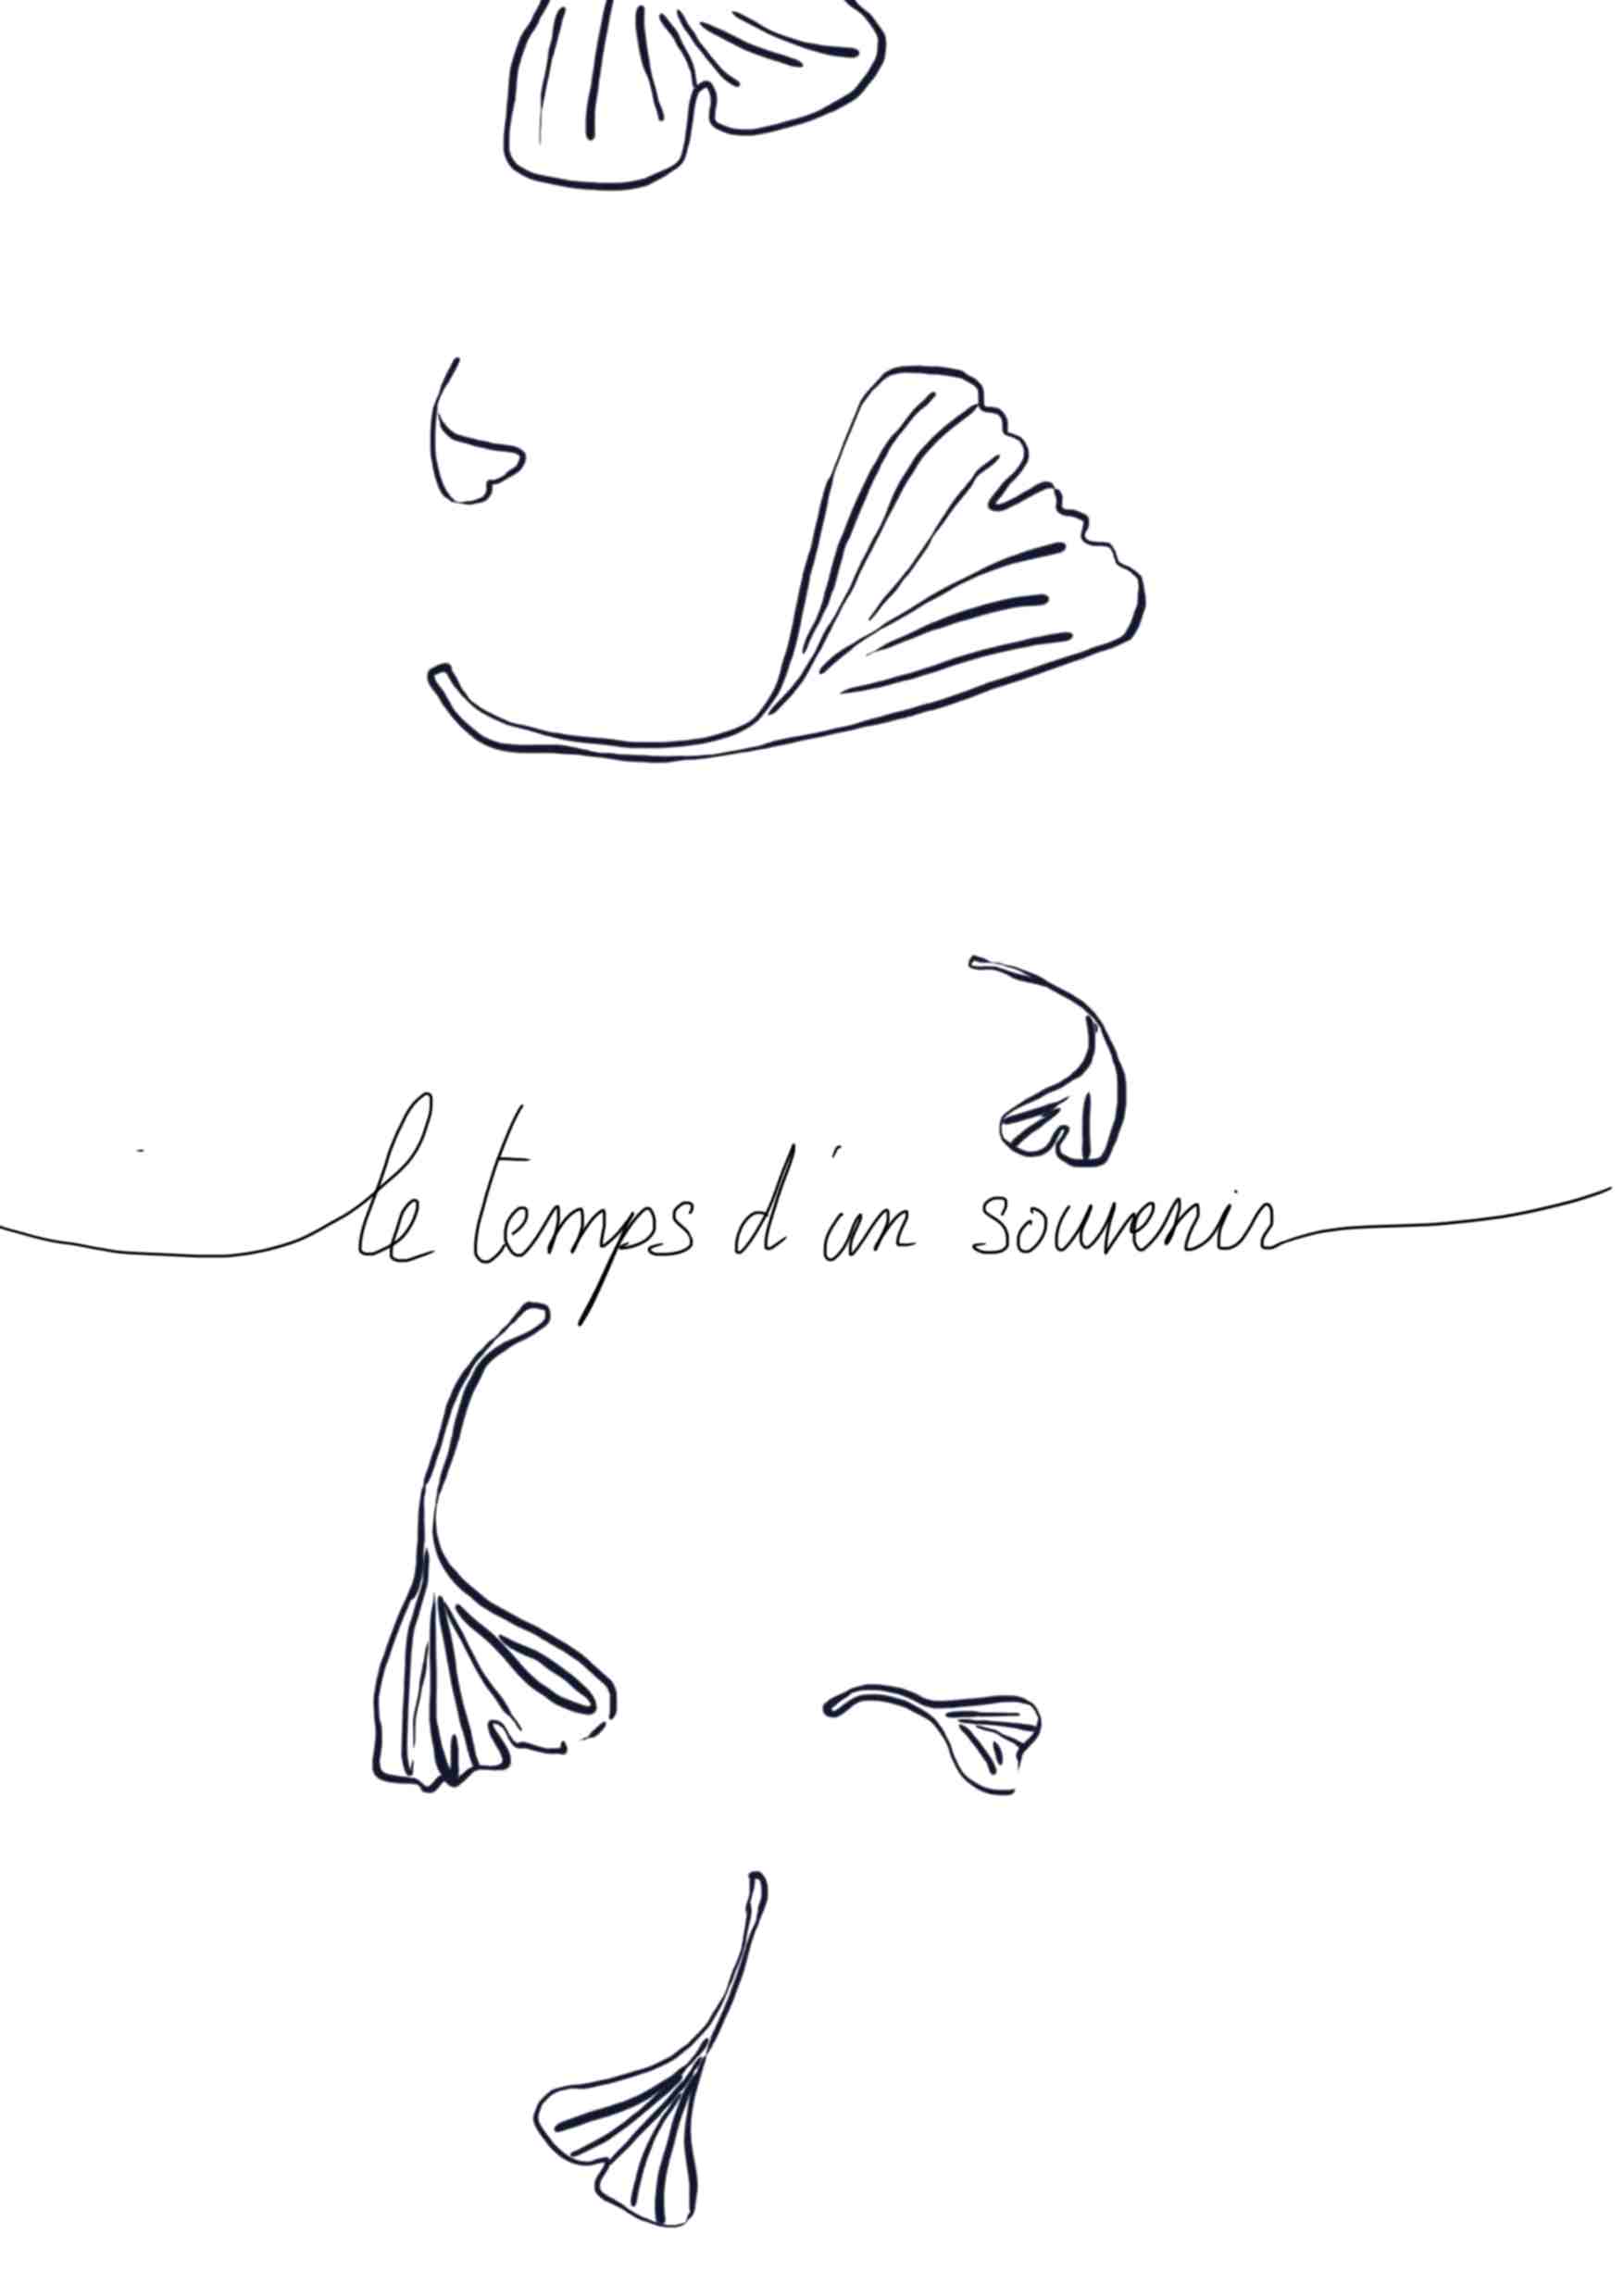 le temps d'un souvenir